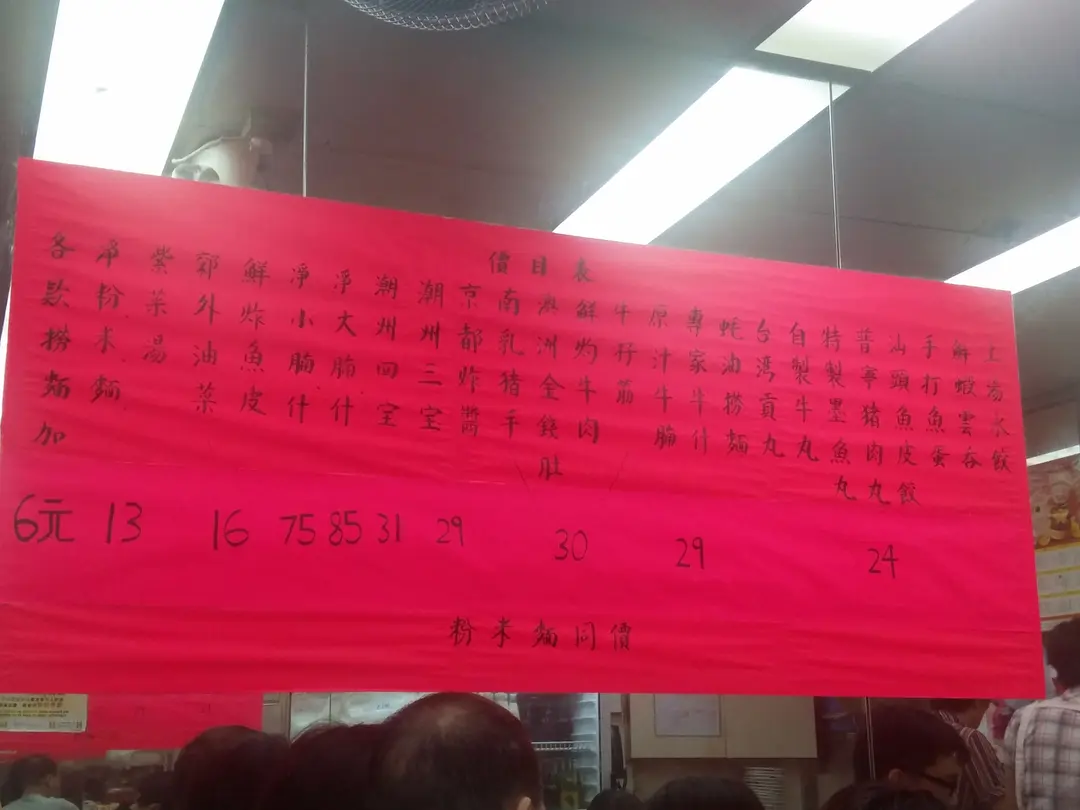 價目表
上湯水餃
鮮蝦雲吞
手打魚蛋
汕頭魚皮餃
普寧豬肉丸
特製墨魚丸
自製牛丸
台湾貢丸
蚝油撈麵
專家牛什
原汁牛腩
牛仔筋
鮮灼牛肉
潮洲金錢肚
南乳猪手
京都炸醬
潮州三宝
潮州四宝
淨大腩什
淨小腩什
鮮炸魚皮
郊外油菜
紫菜湯
净粉米麵
各款撈麵加
24
29
30
29
31
85
75
16
13
6元
粉米麵同價